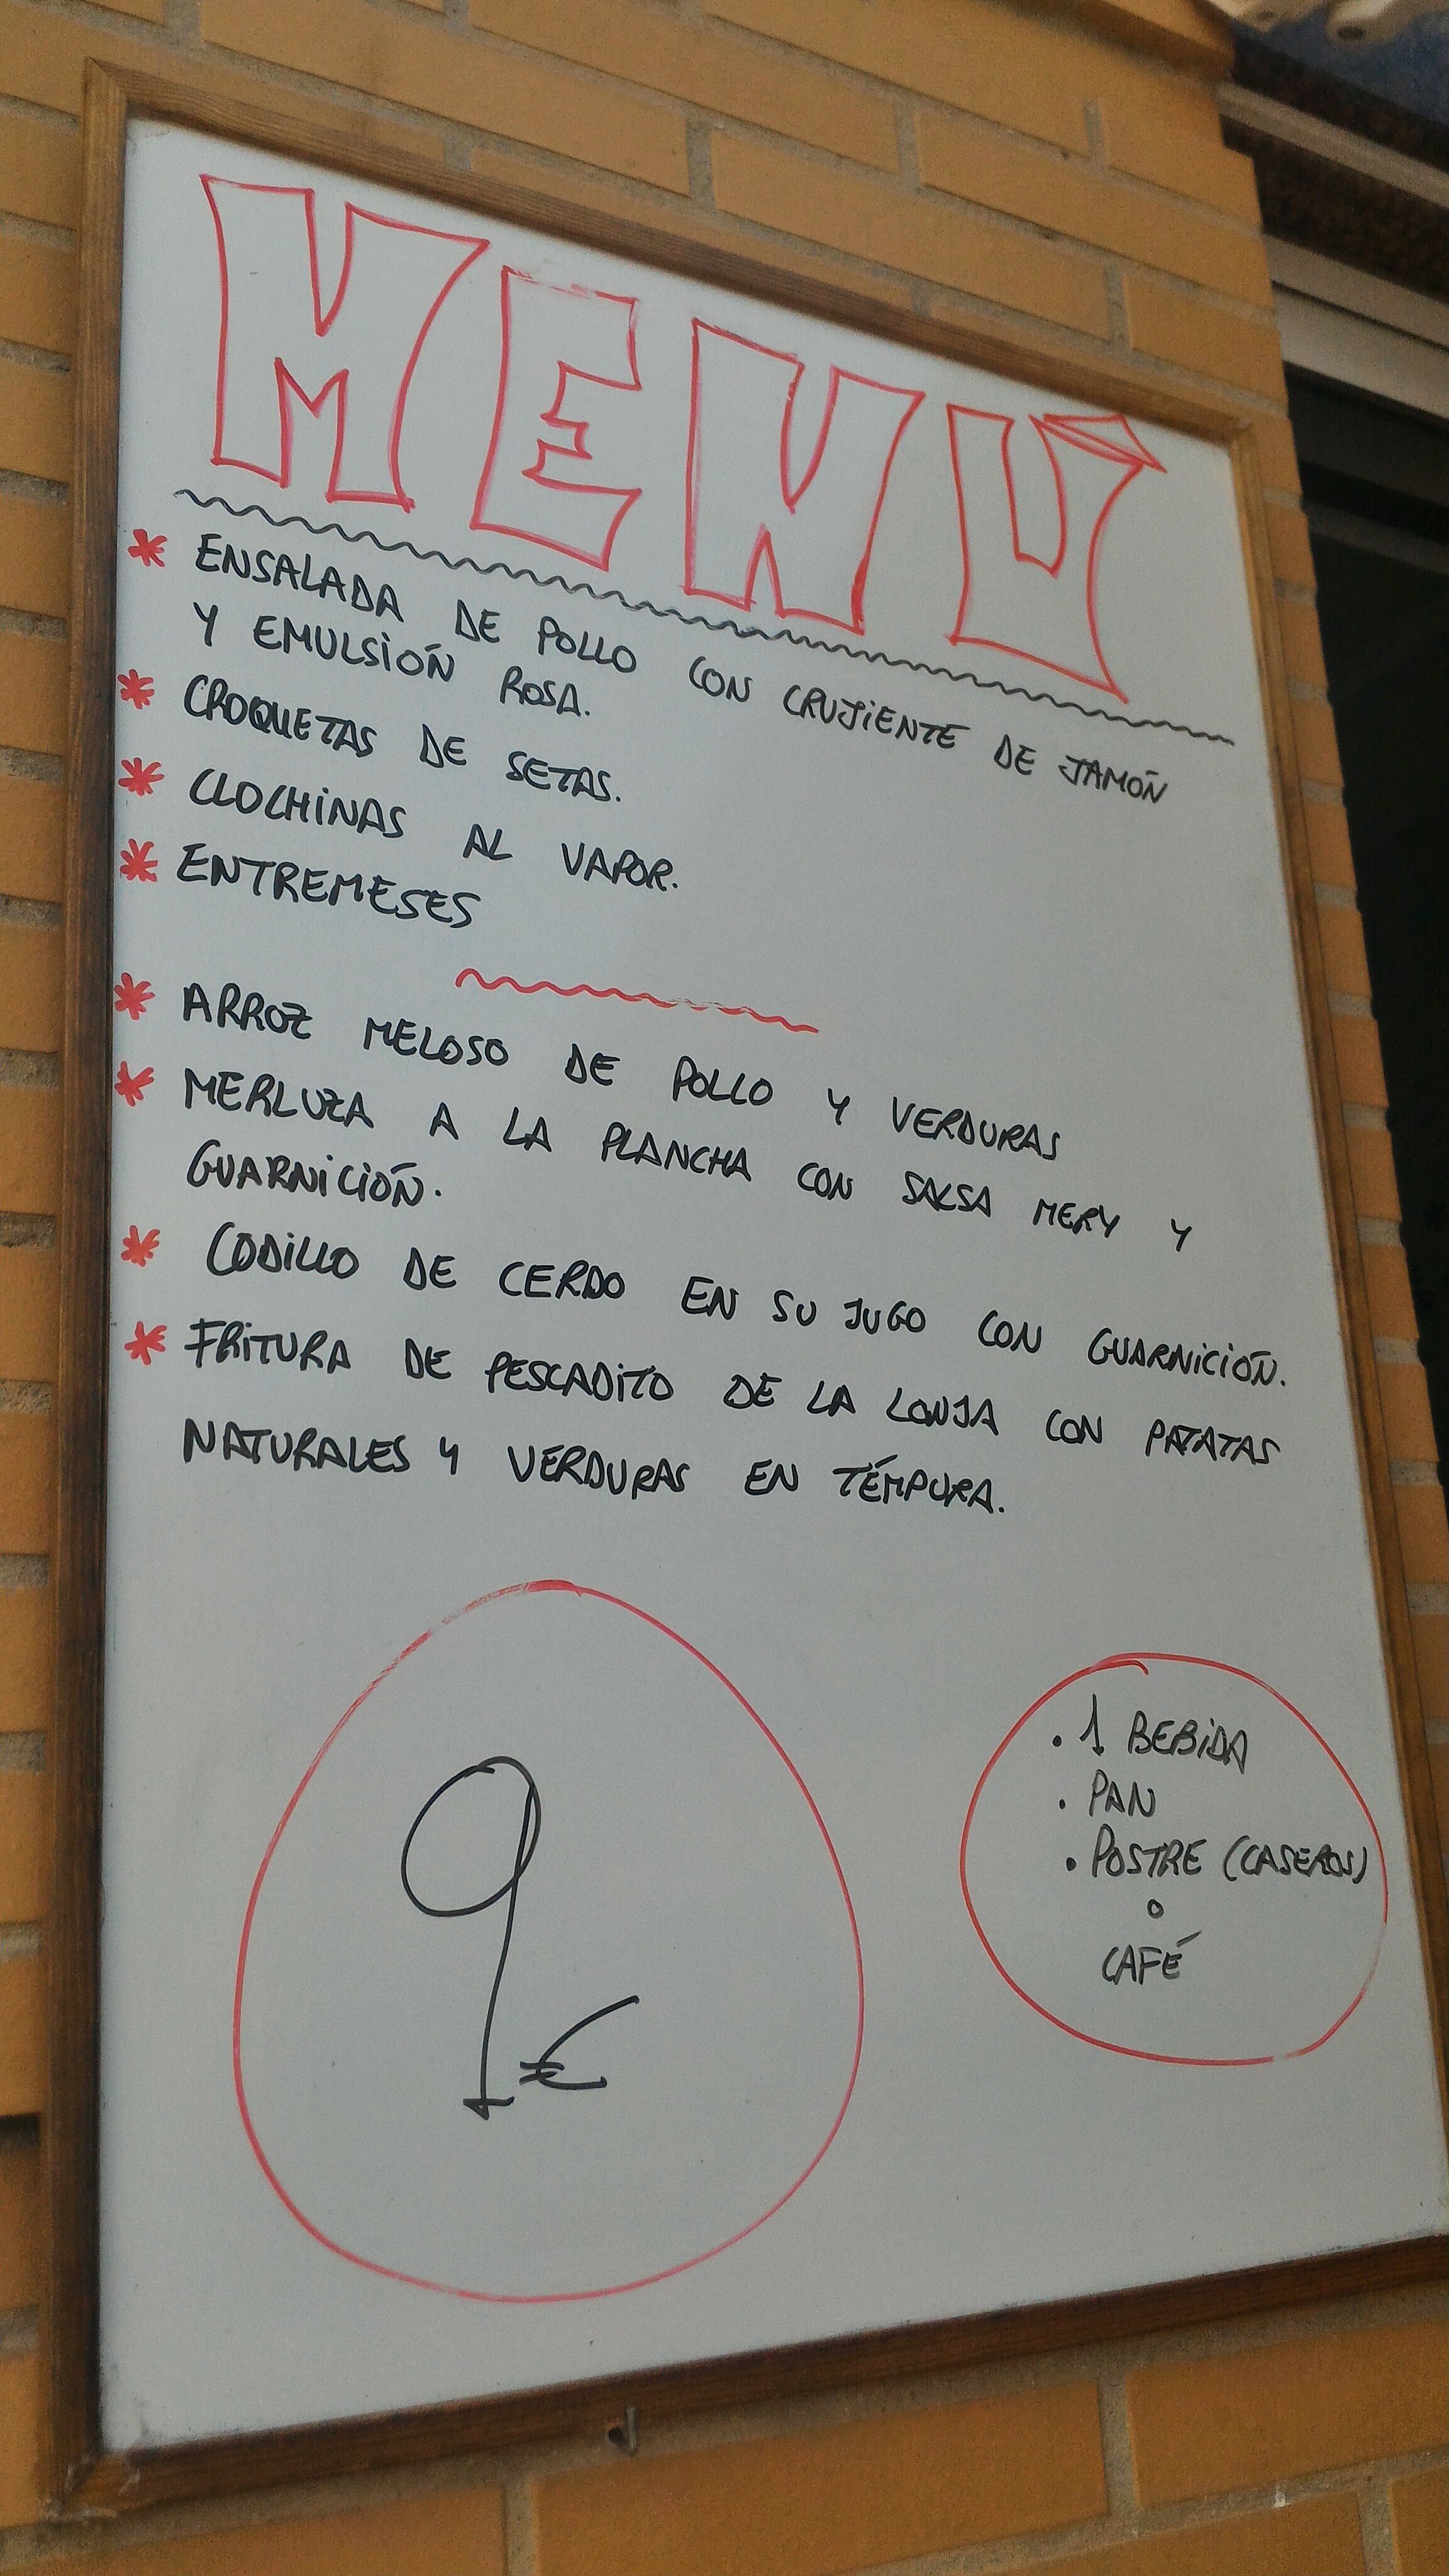 MENÚ
* ENSALADA DE POLLO CON CRUJIENTE DE JAMÓN
Y EMULSIÓN ROSA.
* CROQUETAS DE SETAS.
* CLOCHINAS AL VAPOR.
* ENTREMESES
* ARROZ MELOSO DE POLLO Y VERDURAS
* MERLUZA A LA PLANCHA CON SALSA MERY Y
GUARNICIÓN.
* CODILLO DE CERDO EN SU JUGO CON GUARNICIÓN.
* FRITURA DE PESCADITO DE LA LONJA CON PATATAS
NATURALES Y VERDURAS EN TÉMPURA.
9€
· 1 BEBIDA
· PAN
· POSTRE (CASEROS)
o
CAFÉ